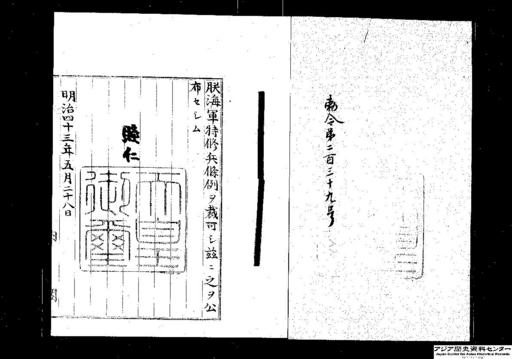 勅令第二百三十九号
朕海軍特修兵條例ヲ裁可シ茲ニ之ヲ公
布セシム
睦仁
天皇
御璽
明治四十三年五月二十八日
内閣
アジア歴史資料センター
Japan Center for Asian Historical Records